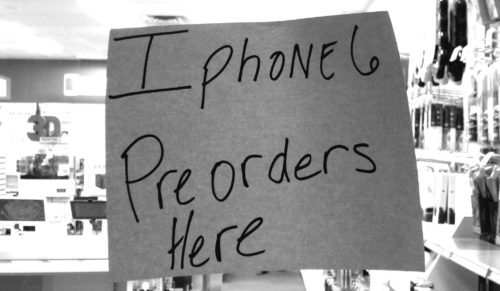 I PhONE6
Preorders
Here
3D